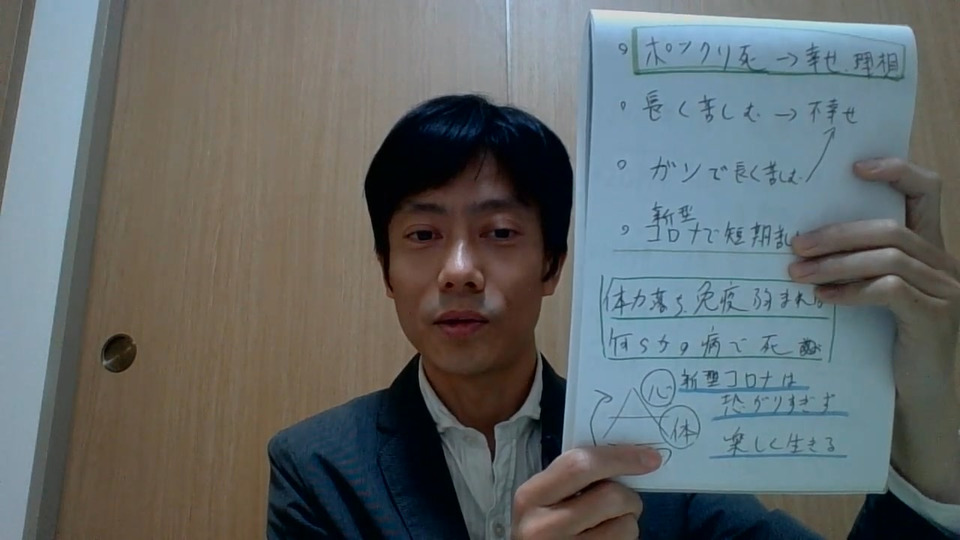 ポックリ死→幸せ、理相
長く苦しむ→不幸せ
ガンで長く苦しむ
新型
コロナで短期
体力落ち免疫
何らかの病で死
心
新型コロナは
恐がりすぎず
体
楽しく生きる